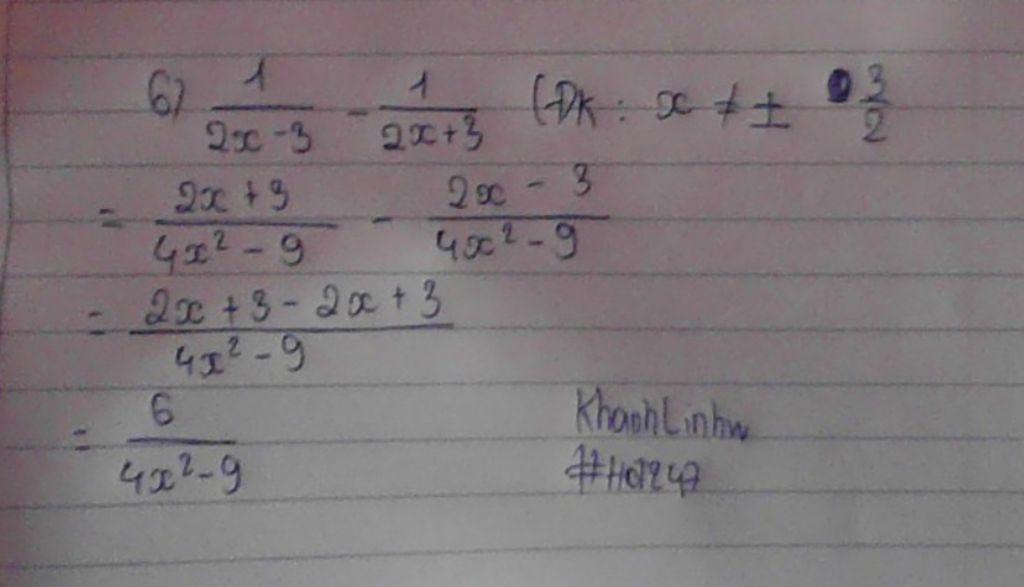 6) \frac{1}{2x-3} - \frac{1}{2x+3} (ĐK: x ≠ ± \frac{3}{2}
= \frac{2x+3}{4x²-9} - \frac{2x-3}{4x²-9}
= \frac{2x+3-2x+3}{4x²-9}
= \frac{6}{4x²-9}
KhanhLinhw
#HOI247